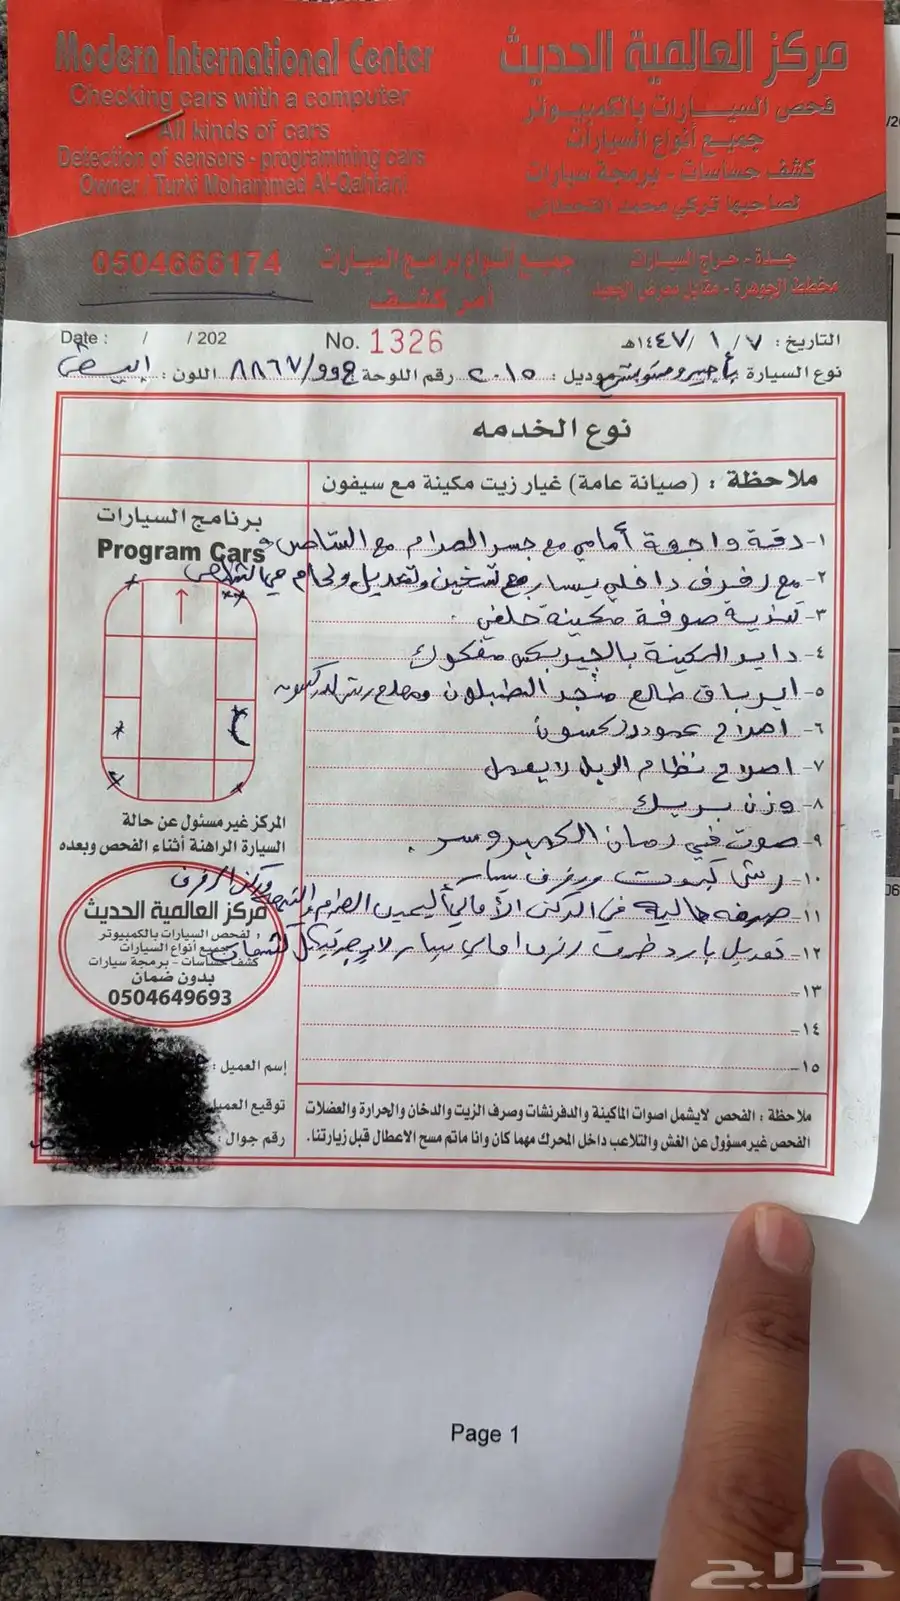 Modern International Center
Checking cars with a computer
All kinds of cars
Detection of sensors - programming cars
Owner / Turki Mohammed Al-Qahtani
مركز العالمية الحديث
فحص السيارات بالكمبيوتر
جميع أنواع السيارات
كشف حساسات - برمجة سيارات
لصاحبها تركي محمد القحطاني
0504666174
جميع أنواع برامج السيارات
أمر كشف
جدة - حراج السيارات
مخطط الجوهرة - مقابل معرض الجعيد
Date : / / 202
No. 1326
التاريخ : ٧ / ١ / ١٤٤٧هـ
نوع السيارة : باجيرو موديل : ٢٠١٥ رقم اللوحة ٨٨٦٧ اللون : ابيض
نوع الخدمه
ملاحظة : (صيانة عامة) غيار زيت مكينة مع سيفون
١- دقة واجهة أمامي مع جسر الصدام مع الشاص
٢- مع رفرف داخلي يسار مع تشخين وتعديل ولحام
٣- تندية صوفة مكينة خلفي
٤- داير المكينة بالجير بكس مفكوك
٥- ايرباق طالع منجد الطبلون
٦- اصلاح عمود دركسون
٧- اصلاح نظام الدبل لا يعمل
٨- وزن بريك
٩- صوت في رمان الكمبروسر
١٠- رش كبوت ورفرف يسار
١١- في الركن الأمامي أليمين الصدام
١٢- تعديل بارد طرف رفرف امامي يسار
١٣-
١٤-
١٥-
برنامج السيارات
Program Cars
المركز غير مسئول عن حالة
السيارة الراهنة أثناء الفحص وبعده
مركز العالمية الحديث
لفحص السيارات بالكمبيوتر
جميع أنواع السيارات
كشف حساسات - برمجة سيارات
بدون ضمان
0504649693
إسم العميل :
توقيع العميل
رقم جوال :
ملاحظة : الفحص لايشمل اصوات الماكينة والدفرنشات وصرف الزيت والدخان والحرارة والعضلات
الفحص غير مسؤول عن الغش والتلاعب داخل المحرك مهما كان وانا ماتم مسح الاعطال قبل زيارتنا.
Page 1
حراج